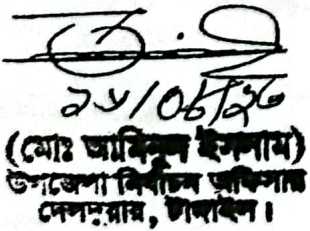 ২৮/০৮/২৩
(মোঃ আমিনুল ইসলাম)
উপজেলা নির্বাচন অফিসার
দেলদুয়ার, টাঙ্গাইল।